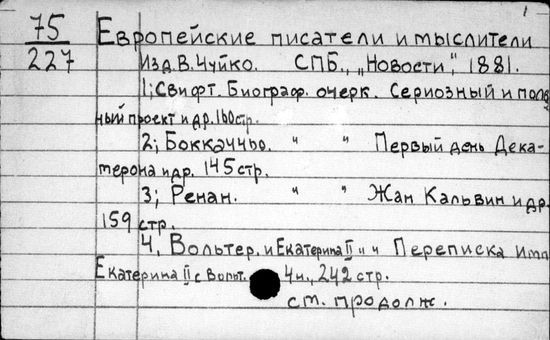 75 Европейские писатели и мыслители
227 Изд. В. Чуйко. СПБ., „Новости", 1881.
1; Свифт. Биограф. очерк. Сериозный и полез
ный проект и др. 160стр.
2; Боккаччьо. " " Первый день Дека-
мерона и др. 145 стр.
3; Ренан. " " Жан Кальвин и др.
159 стр.
4. Вольтер. и Екатерина II " " Переписка Имп
Екатерина II с Вольт. 4н., 242 стр.
см. продолж.